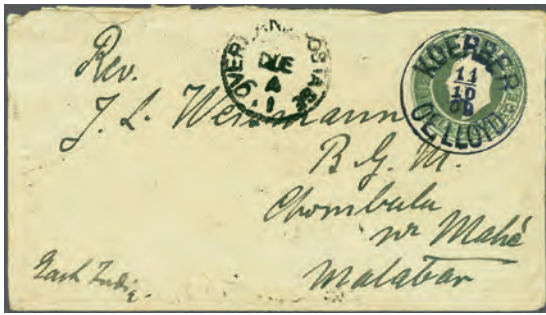 Rev.
J. L. Weismann
B. G. M.
Chombala
nr Mahé
Malabar
East India
OVERLAND POSTAGE
DUE
A
1
KOERBER
11
10
OE. LLOYD